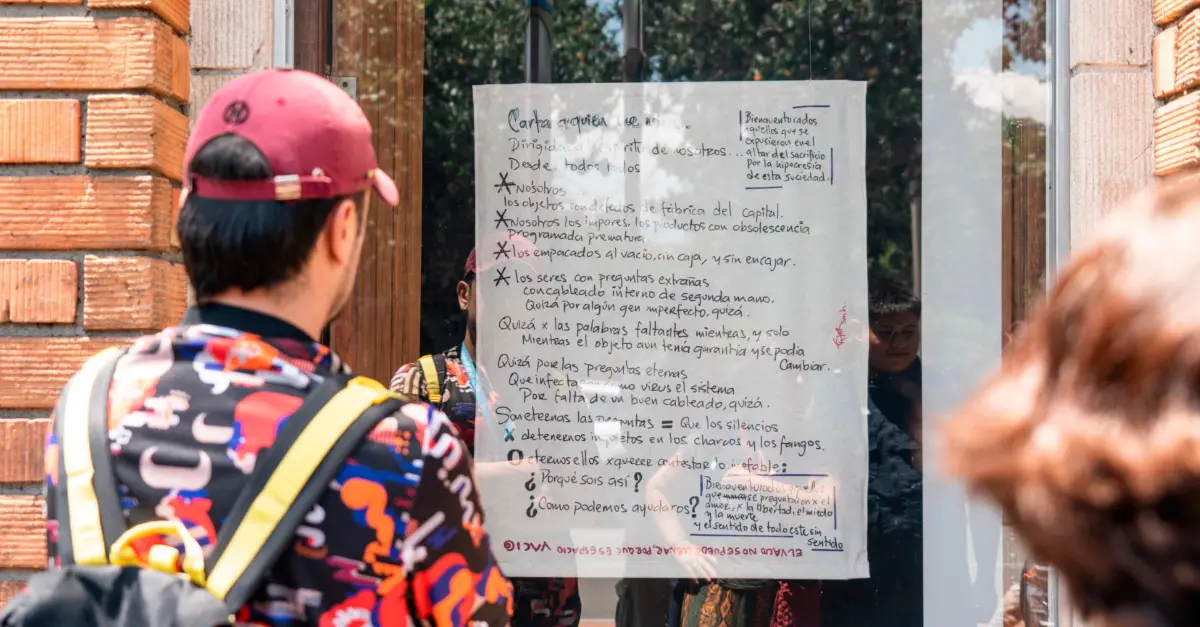 Carta a quién
Dirigida de nosotros...
Desde todos todos
Bienaventurados
aquellos que se
expusieron en el
altar del sacrificio
por la hipocresía
de esta suciedad.
* Nosotros
los objetos con defectos de fábrica del capital.
* Nosotros los impares, los productos con obsolescencia
programada prematura
* los empacados al vacío, sin caja, y sin encajar.
* los seres con preguntas extrañas
con cableado interno de segunda mano.
Quizá por algún gen imperfecto, quizá.
Quizá x las palabras faltantes mientras, y solo
Mientras el objeto aun tenía garantía y se podía
Cambiar.
Quizá por las preguntas eternas
Que infectan como virus el sistema
Por falta de un buen cableado, quizá.
Son eternas las preguntas = Que los silencios
x detenernos inquietos en los charcos y los fangos.
O eternos ellos x querer contestar lo inefable:
¿Porqué sois así?
¿Como podemos ayudaros?
Bienaventurados aquellos
que se preguntaron x el
amor, x la libertad, el miedo
y la muerte,
y el sentido de todo este sin
sentido
EL VACIO NO SE PUEDE LLENAR, PORQUE ES ESPACIO VACIO